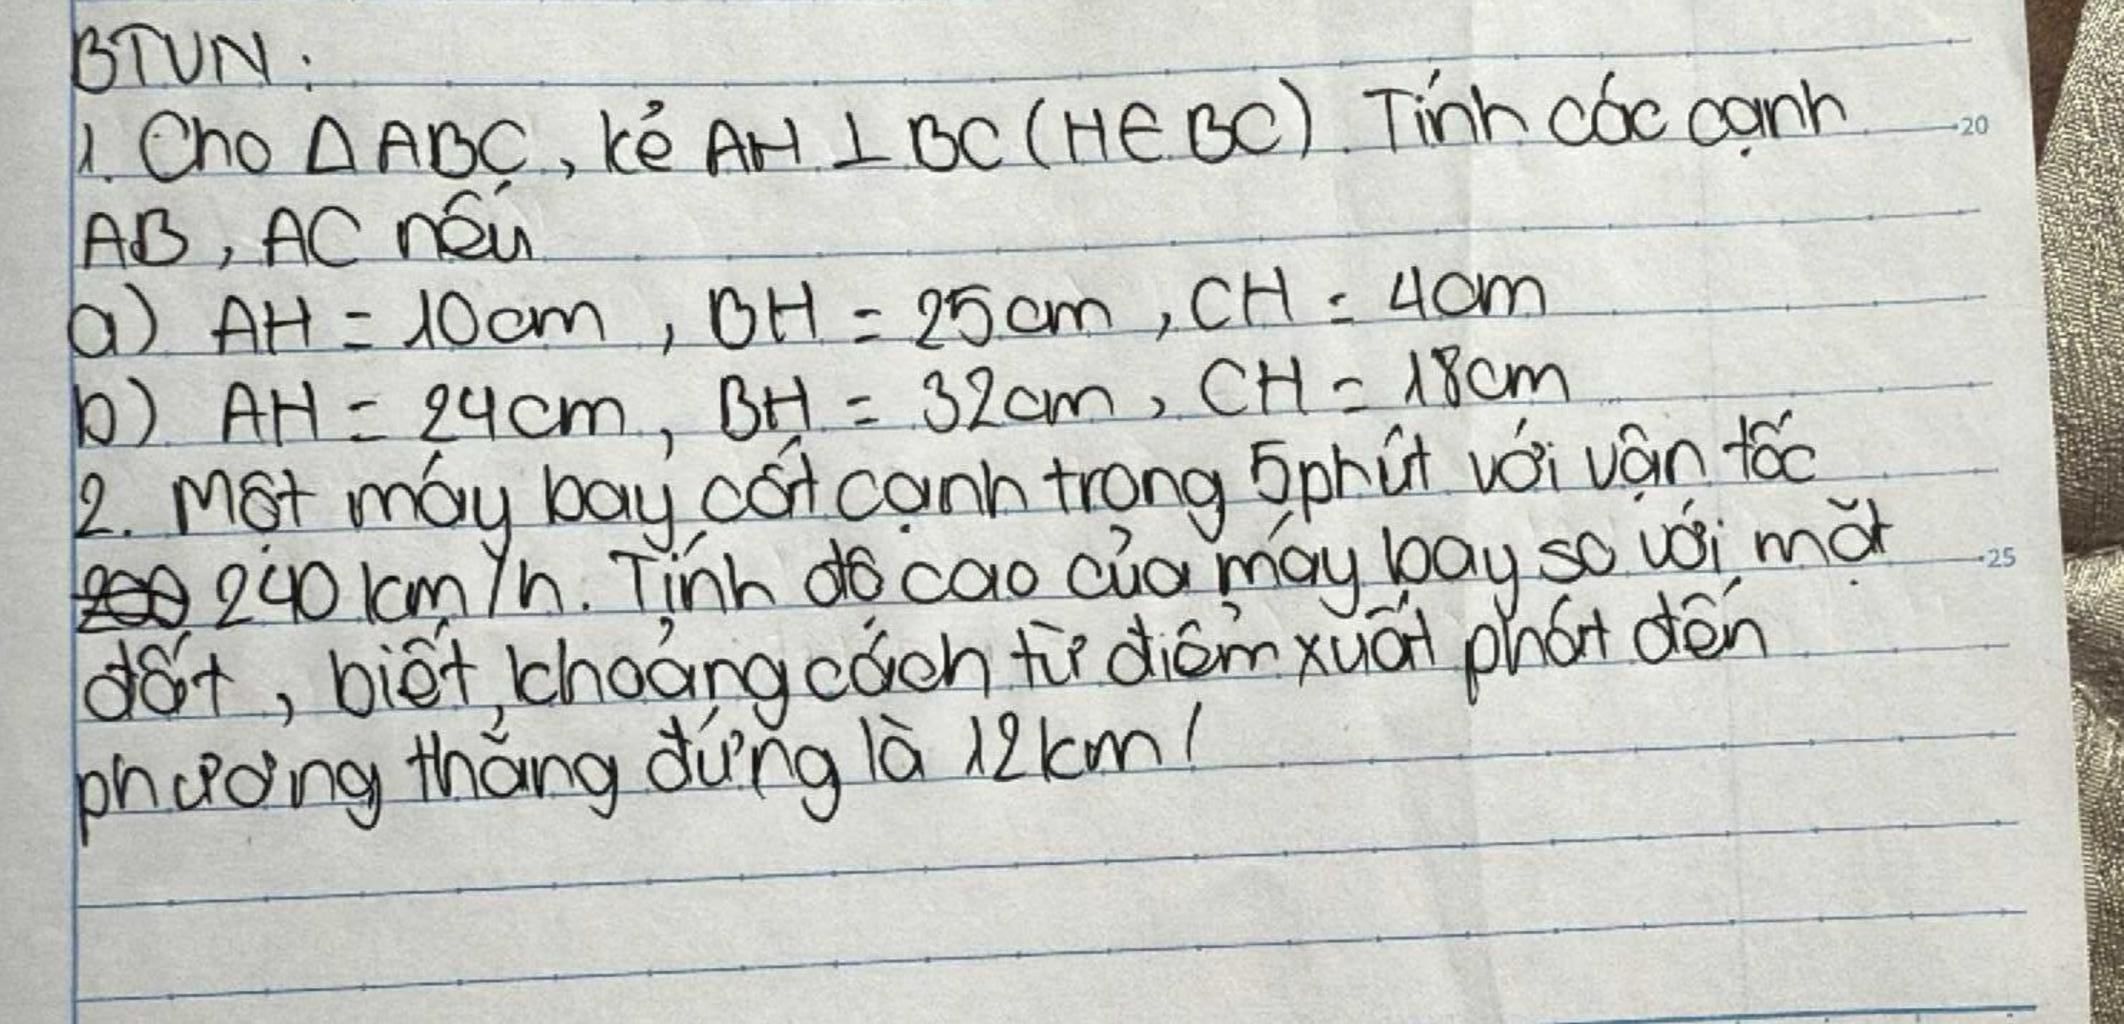 BTVN:
1. Cho △ABC, kẻ AH ⊥ BC (H∈BC). Tính các cạnh
AB, AC nếu
a) AH = 10cm, BH = 25cm, CH = 4cm
b) AH = 24cm, BH = 32cm, CH = 18cm
2. Một máy bay cất cạnh trong 5phút với vận tốc
240 km/h. Tính độ cao của máy bay so với mặt
đất, biết khoảng cách từ điểm xuất phát đến
phương thẳng đứng là 12km!
20
25